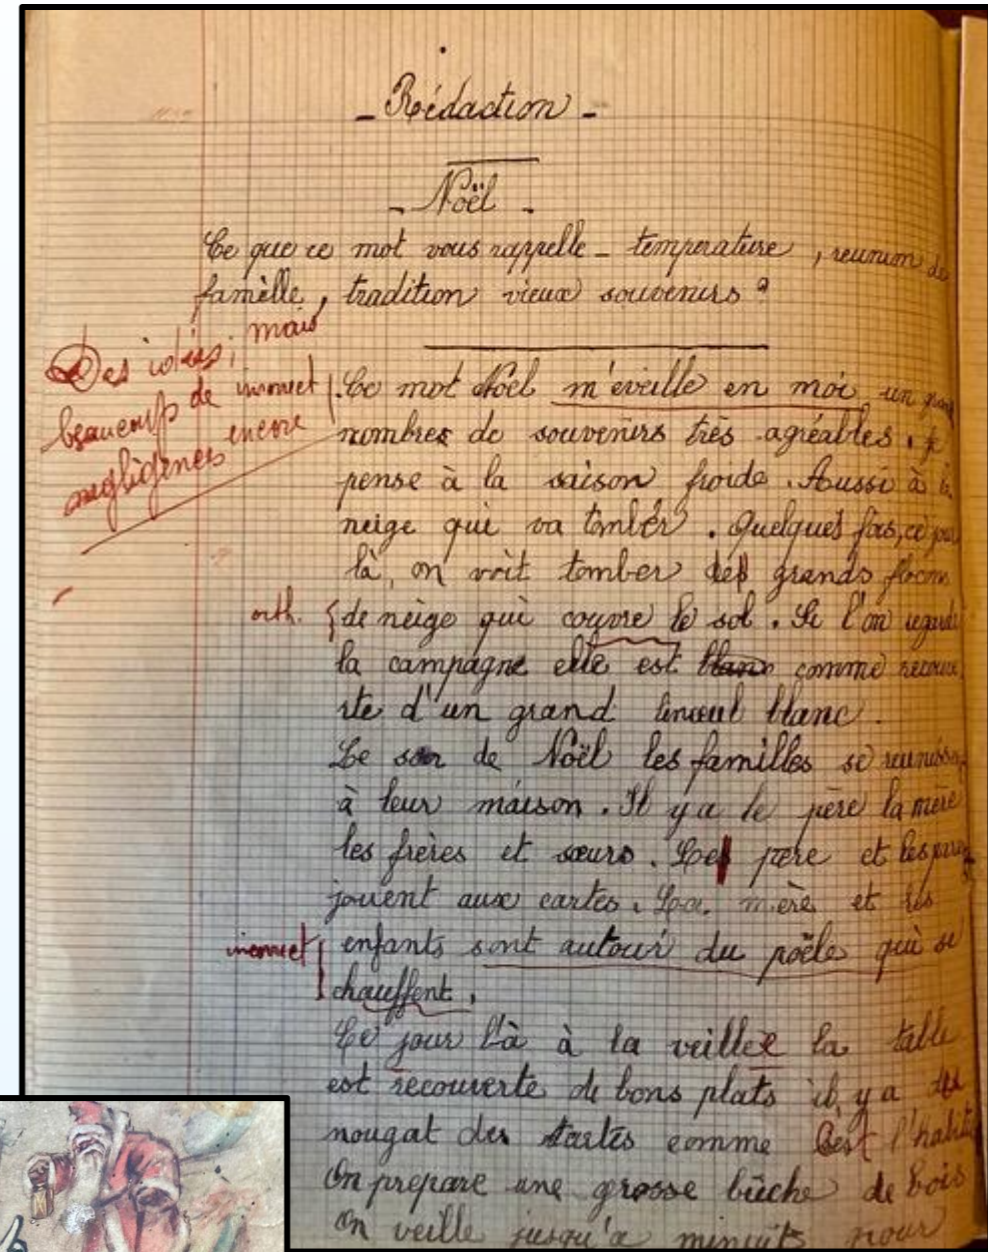 - Rédaction -
- Noël -
Ce que ce mot vous rappelle - temperature, reunion de
famille, tradition vieux souvenirs ?
Des idées; mais
beaucoup de
négligences encore
incorrect
Ce mot Noel m'eveille en moi un grand
nombres de souvenirs très agréables. je
pense à la saison froide. Aussi à la
neige qui va tomber. Quelques fois, ce jour
là, on voit tomber des grands flocons
orth.
de neige qui couvre le sol. Si l'on regarde
la campagne elle est blanc comme recouve
rte d'un grand linceul blanc.
Le soir de Noël les familles se reunissent
à leur maison. Il y a le père la mère
les frères et sœurs. Le père et les
jouent aux cartes. La mère et les
incorrect
enfants sont autour du poële qui se
chauffent.
Ce jour là à la veillee la table
est recouverte de bons plats il y a du
nougat des tartes comme c'est l'habitu
On prepare une grosse bûche de bois
On veille jusqu'a minuits pour